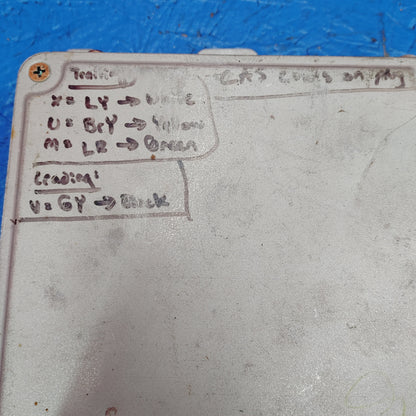 Trailing
X = LY → White
U = BrY → Yellow
M = LR → Green
Leading:
V = GY → Black
CAS on plug